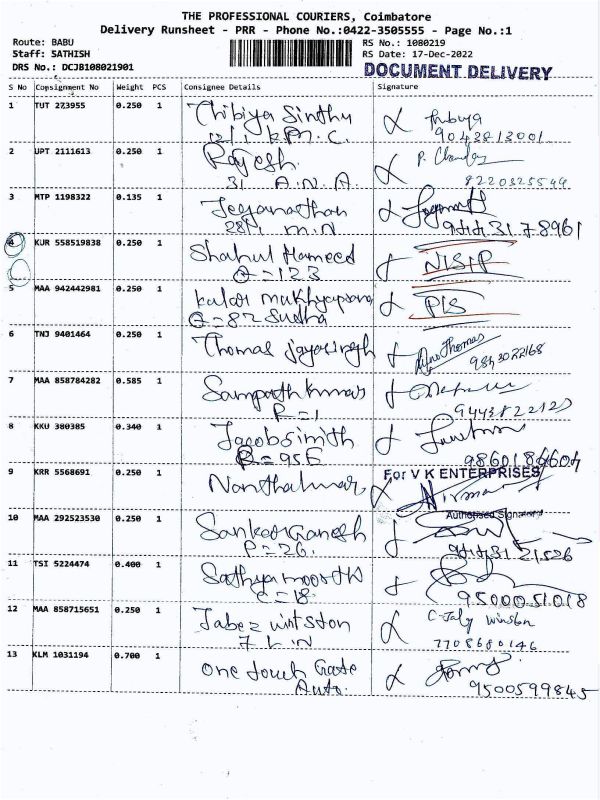 THE PROFESSIONAL COURIERS, Coimbatore
Delivery Runsheet - PRR - Phone No.:0422-3505555 - Page No.:1
Route: BABU RS No.: 1080219
Staff: SATHISH RS Date: 17-Dec-2022
DRS No.: DCJB108021901 DOCUMENT DELIVERY
S No Consignment No Weight PCS Consignee Details Signature
1 TUT 273955 0.250 1 Thibiya Sindhu
12/1 K.M.C. 9043813001
2 UPT 2111613 0.250 1 Rajesh P. Chandra
31 A.N.A. 8220325549
3 MTP 1198322 0.135 1 Jeganathan
28/1 M.N 9443178961
4 KUR 558519838 0.250 1 Shahul Hameed N|S|P
Q=123
5 MAA 942442981 0.250 1 P|S
Q=82 Sudha
6 TNJ 9401464 0.250 1 Thomas Jayasingh Thomas
9843022168
7 MAA 858784282 0.585 1 Sampathkumar
R=1 9443822123
8 KKU 380385 0.340 1 Jacobsmith
R=95E 9860184604
9 KRR 5568691 0.250 1 Nanthakumar For V K ENTERPRISES
Authorised Signatory
10 MAA 292523530 0.250 1 Sankar Ganesh
P=26. 9443121526
11 TSI 5224474 0.400 1 Sathyamoorthi
C=18. 9500051018
12 MAA 858715651 0.250 1 Jabez winston C. Jaly winston
7 L.N 7708680146
13 KLM 1031194 0.700 1 One touch Gate
Auto. 9500599845